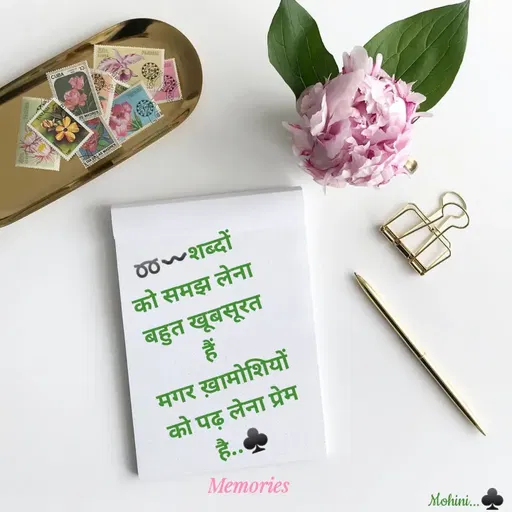 ➿〰शब्दों
को समझ लेना
बहुत खूबसूरत
हैं
मगर ख़ामोशियों
को पढ़ लेना प्रेम
है..♣
Memories
Mohini...♣
CUBA